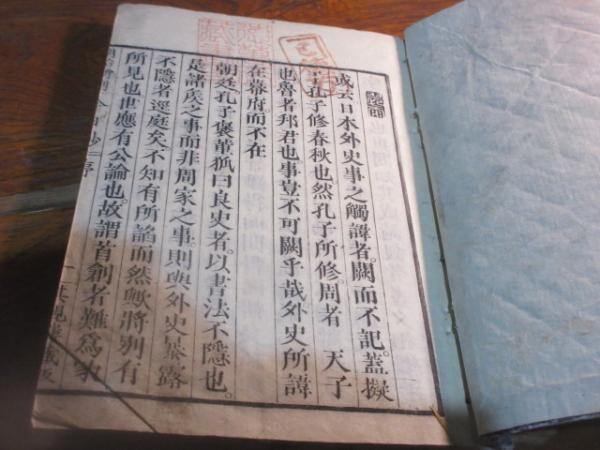 或云日本外史事之觸諱者。闕而不記。蓋擬
孔子修春秋也然孔子所修。周者　天子
也魯者邦君也事豈不可闕乎哉外史所諱
在幕府。而不在
朝廷孔子褒董狐曰良史者。以書法不隱也。
是諸矦之事而非周家之事則與外史暴露
不隱者逕庭矣。不知有所諂而然歟將別有
所見也世應有公論也。故謂首創者難爲